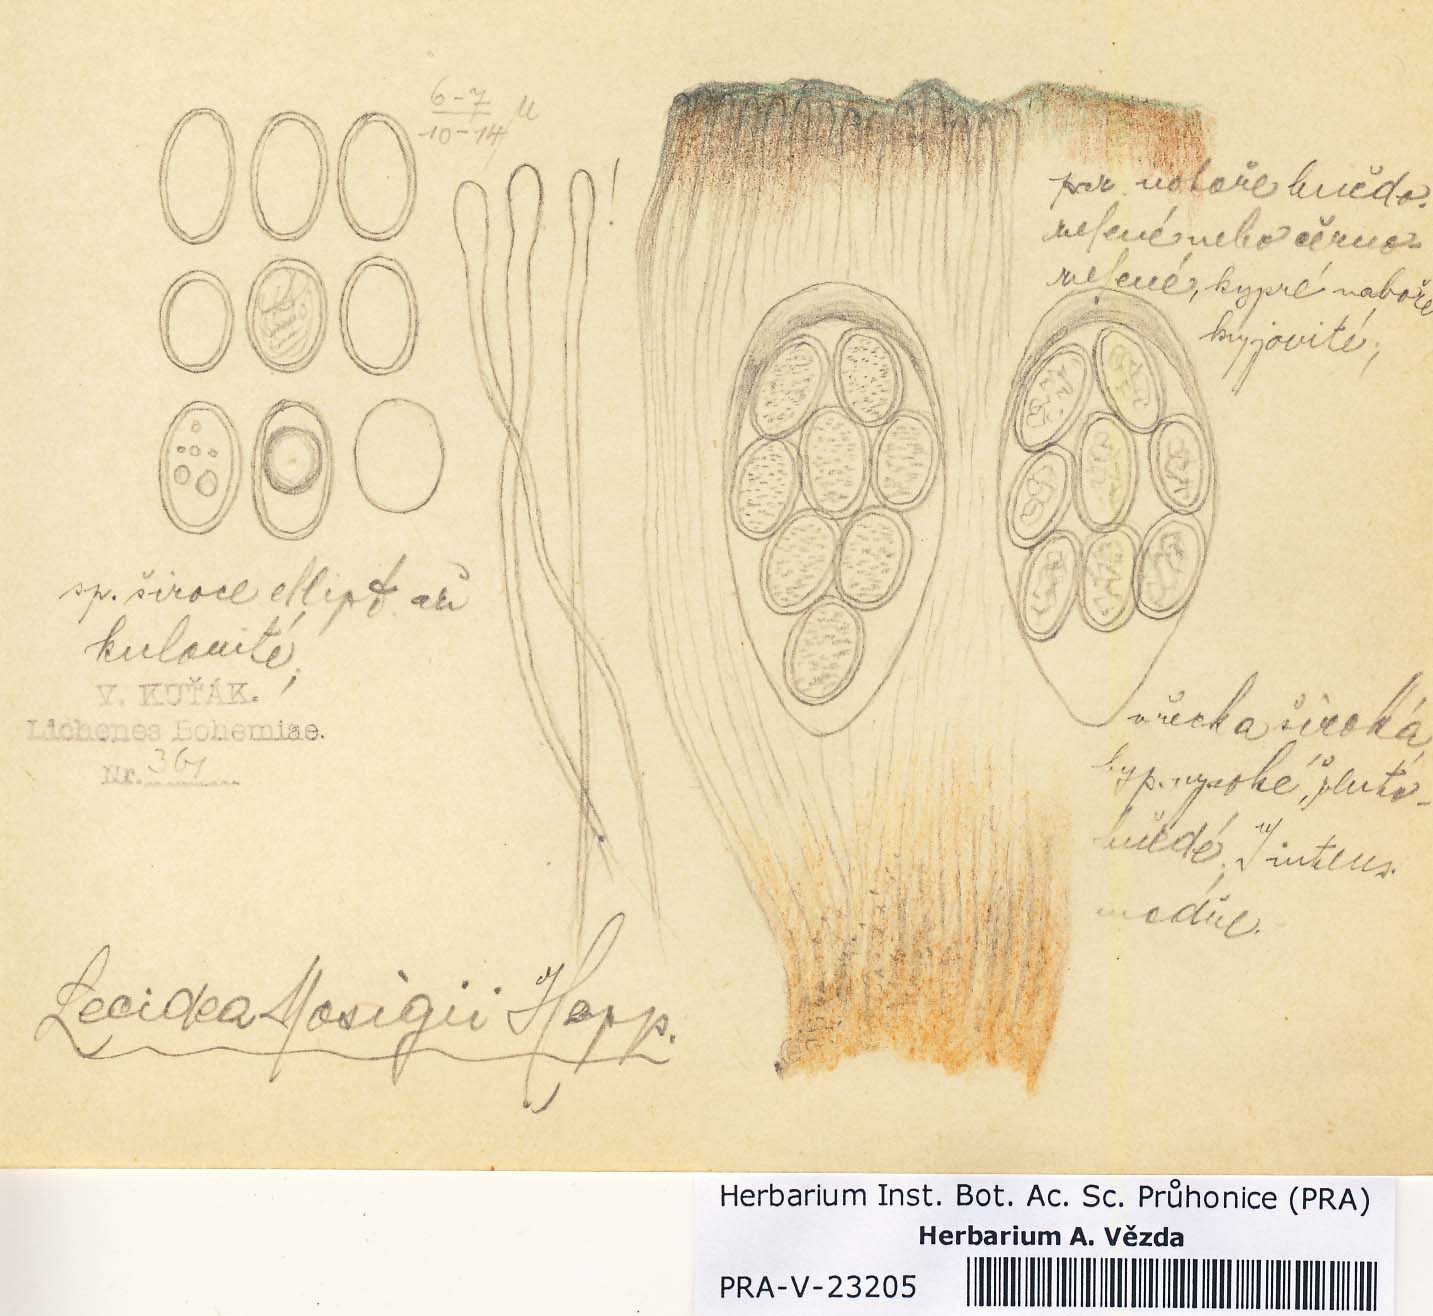 6-7
10-14 µ
!
par. nahoře hnědo-
zelené nebo černo-
zelené, kypré nahoře
kyjovité;
sp. široce ellipt. až
kulovité;
V. KUŤÁK.
Lichenes Bohemiae.
Nr. 361
vřecka široká,
hyp. vysoké, žluto-
hnědé, J intens.
modře.
Lecidea Mosigii Hepp.
Herbarium Inst. Bot. Ac. Sc. Průhonice (PRA)
Herbarium A. Vězda
PRA-V-23205